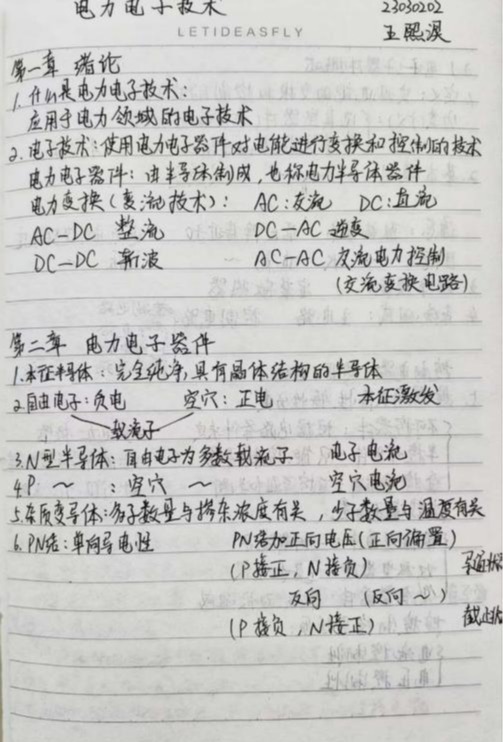 电力电子技术
23030202
王熙淏
LETIDEASFLY
第一章 绪论
1.什么是电力电子技术:
应用于电力领域的电子技术
2.电子技术:使用电力电子器件对电能进行变换和控制的技术
电力电子器件:由半导体制成,也称电力半导体器件
电力变换(变流技术): AC:交流 DC:直流
AC—DC 整流 DC—AC 逆变
DC—DC 斩波 AC—AC 交流电力控制
(交流变换电路)
第二章 电力电子器件
1.本征半导体:完全纯净,具有晶体结构的半导体
2.自由电子:负电 空穴:正电 本征激发
载流子
3.N型半导体:自由电子为多数载流子 电子电流
4.P ~ :空穴 ~ 空穴电流
5.杂质半导体:多子数量与掺杂浓度有关,少子数量与温度有关
6.PN结:单向导电性 PN结加正向电压(正向偏置)
(P接正,N接负) 导通状
反向 (反向~)
(P接负,N接正) 截止状